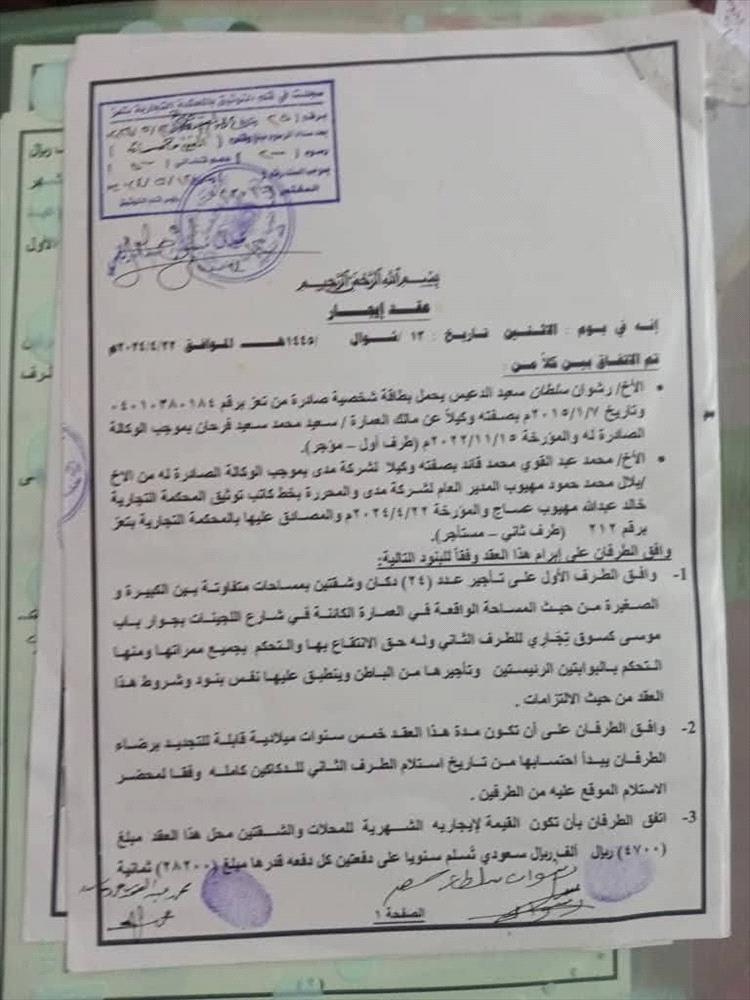 سجلت في قلم التوثيق بالمحكمة التجارية بتعز
برقم ( ٢٥
رسوم ( ٢٠٠
بسم الله الرحمن الرحيم
عقد إيجار
إنه في يوم : الاثنين تاريخ : ١٣ /شوال /١٤٤٥هـ الموافق ٢٠٢٤/٤/٢٢م
تم الاتفاق بين كلاً من :
• الأخ/ رشوان سلطان سعيد الدعيس يحمل بطاقة شخصية صادرة من تعز برقم ٠٤٠١٠٣٨٠١٨٤
وتاريخ ٢٠١٥/١/٧م بصفته وكيلاً عن مالك العمارة / سعيد محمد سعيد فرحان بموجب الوكالة
الصادرة له والمؤرخة ٢٠٢٢/١١/١٥م (طرف أول – مؤجر).
• الأخ/ محمد عبد القوي محمد قائد بصفته وكيلا لشركة مدى بموجب الوكالة الصادرة له من الاخ
/بلال محمد حمود مهيوب المدير العام لشركة مدى والمحررة بخط كاتب توثيق المحكمة التجارية
خالد عبدالله مهيوب عساج والمؤرخة ٢٠٢٤/٤/٢٢م والمصادق عليها بالمحكمة التجارية بتعز
برقم ٢١٢ (طرف ثاني – مستأجر).
وافق الطرفان على إبرام هذا العقد وفقاً للبنود التالية:
1- وافق الطرف الأول على تأجير عدد (٢٤) دكان وشقتين بمساحات متفاوتة بين الكبيرة و
الصغيرة من حيث المساحة الواقعة في العمارة الكائنة في شارع اللجينات بجوار باب
موسى كسوق تِجَاري للطرف الثاني وله حق الانتفاع بها والتحكم بجميع ممراتها ومنها
التحكم بالبوابتين الرئيستين وتأجيرها من الباطن وينطبق عليها نفس بنود وشروط هذا
العقد من حيث الالتزامات .
2- وافق الطرفان على أن تكون مدة هذا العقد خمس سنوات ميلادية قابلة للتجديد برضاء
الطرفان يبدأ احتسابها من تاريخ استلام الطرف الثاني للدكاكين كامله وفقا لمحضر
الاستلام الموقع عليه من الطرفين .
3- اتفق الطرفان بأن تكون القيمة لإيجاريه الشهرية للمحلات والشقتين محل هذا العقد مبلغ
(٤٧٠٠) ريال ألف ريال سعودي تُسلم سنويا على دفعتين كل دفعه قدرها مبلغ (٢٨٢٠٠) ثمانية
رشوان سلطان سعيد
الصفحة ١